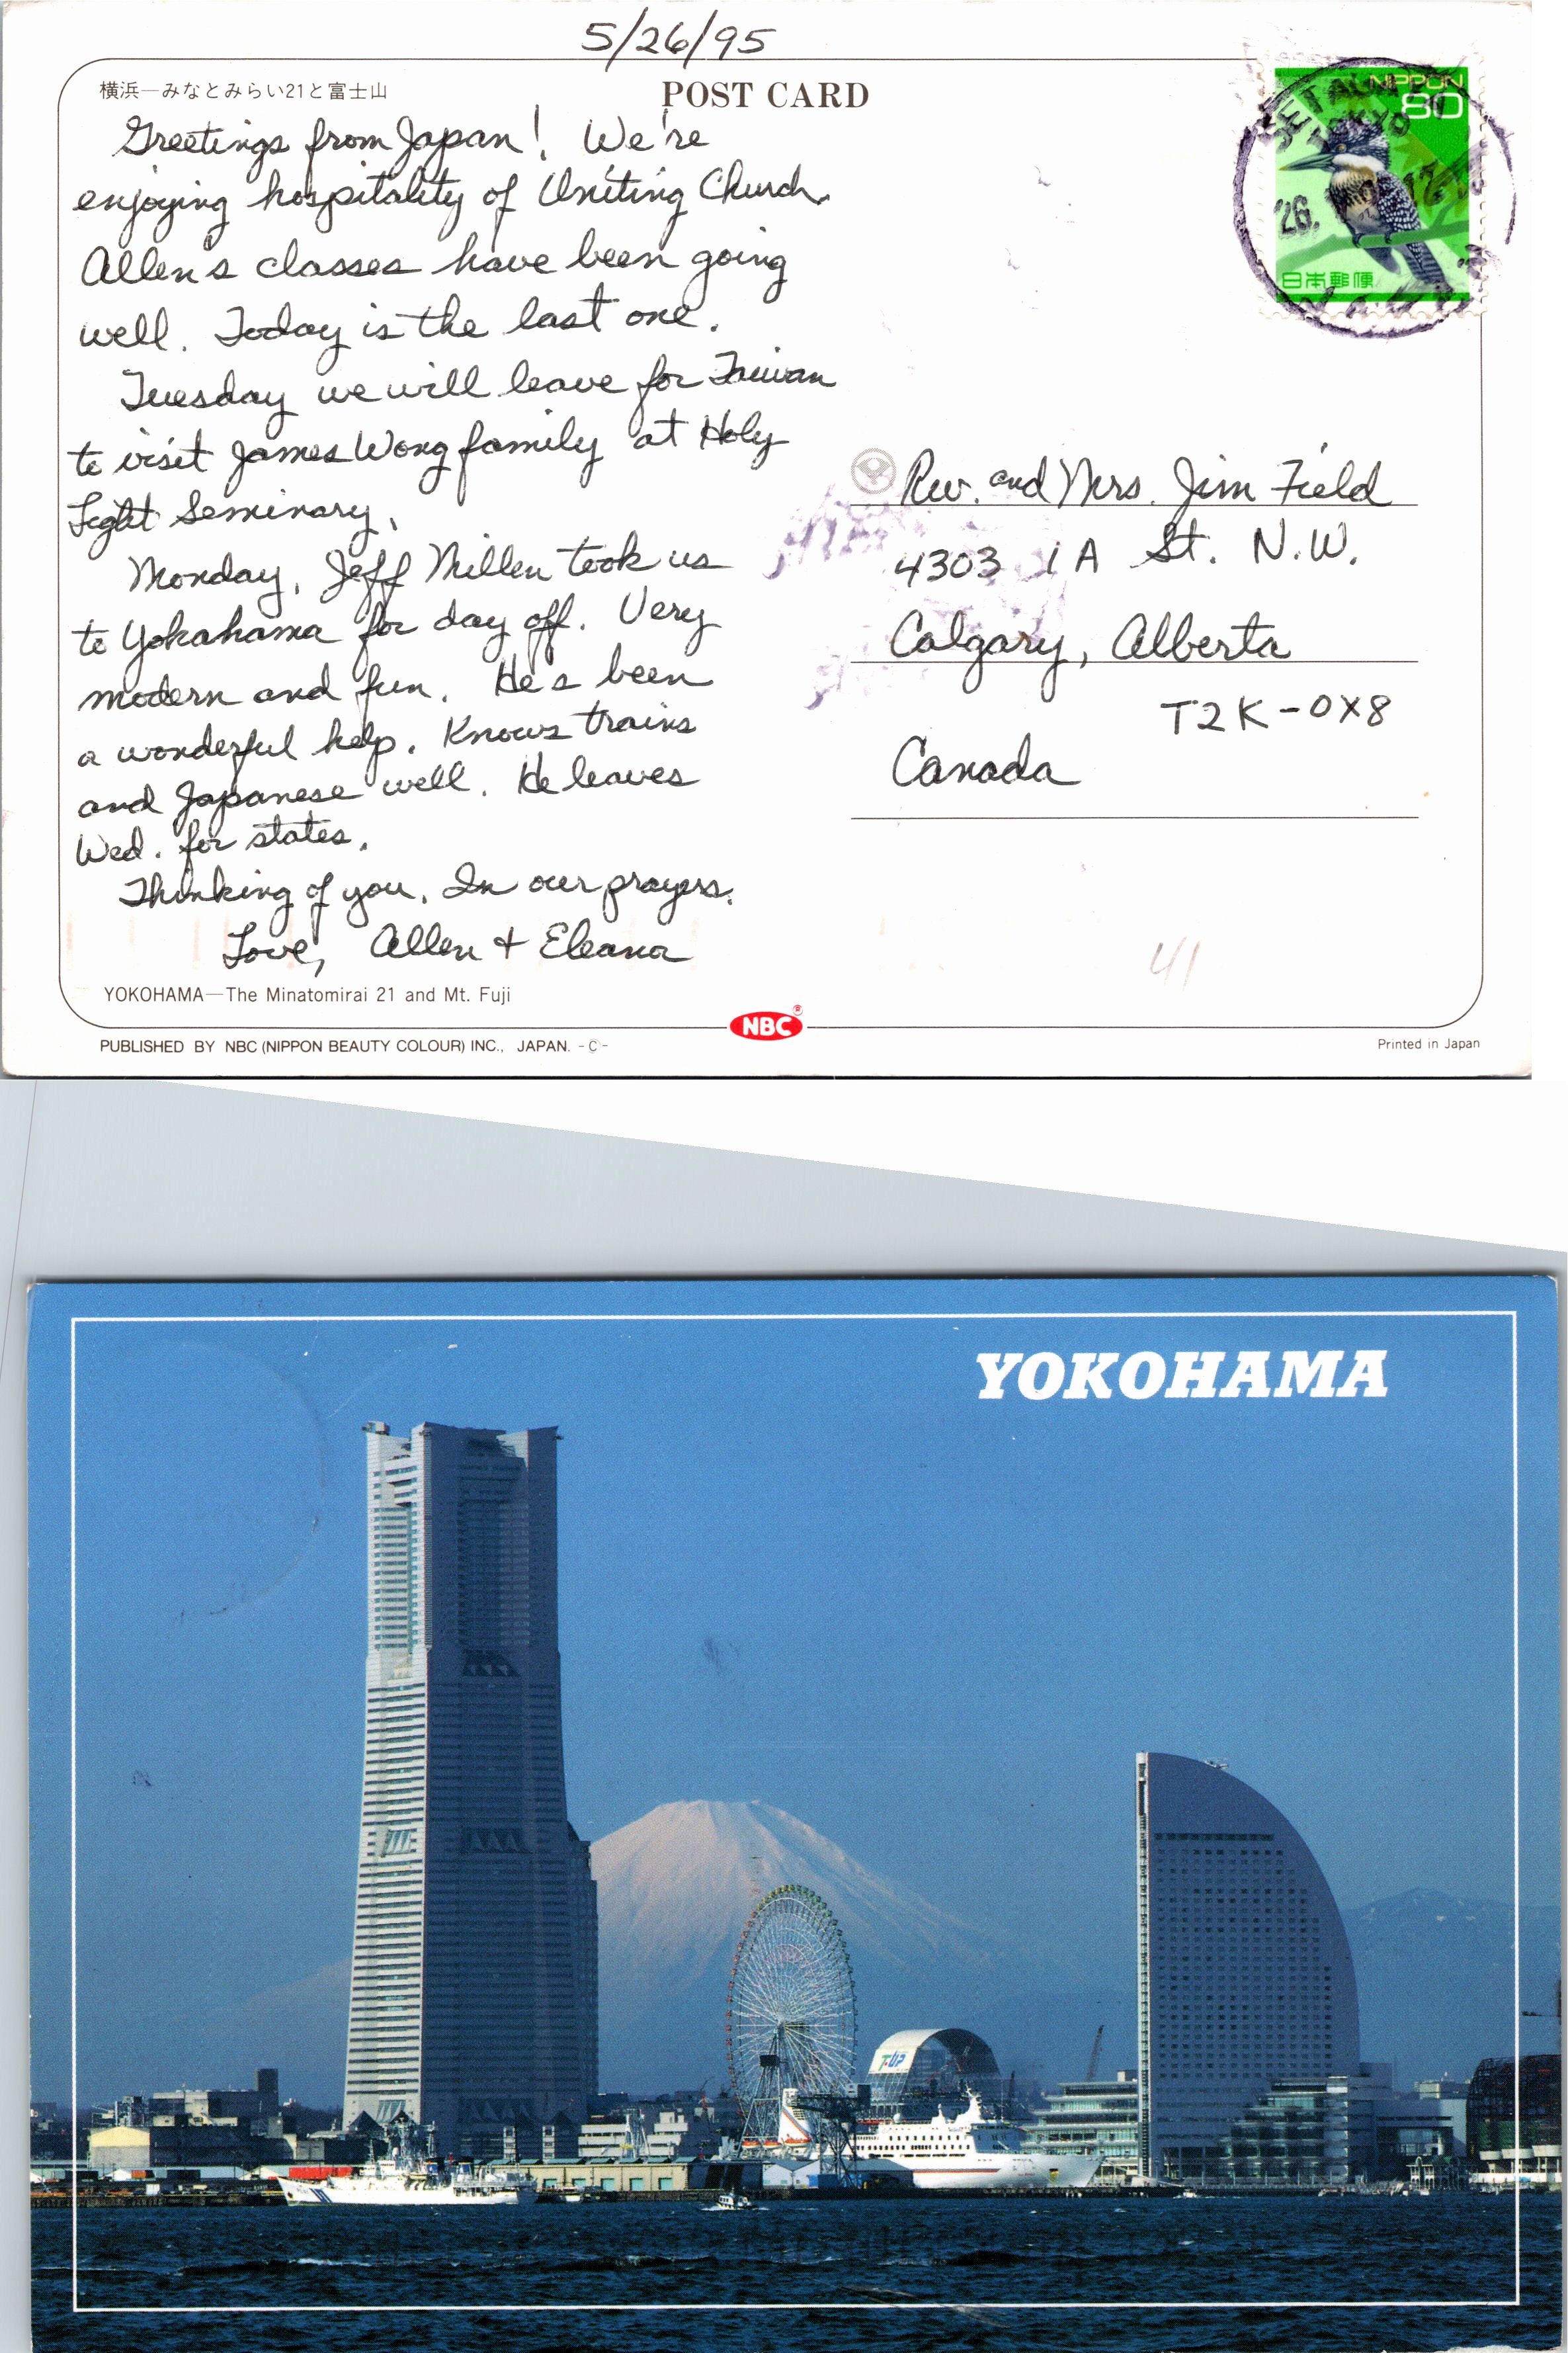 5/26/95
横浜―みなとみらい21と富士山
POST CARD
NIPPON
80
SETAGAYA
TOKYO
26.
日本郵便
Greetings from Japan! We're
enjoying hospitality of Uniting Church.
Allen's classes have been going
well. Today is the last one.
Tuesday we will leave for Taiwan
to visit James Wong family at Holy
Light Seminary.
Monday, Jeff Millen took us
to Yokahama for day off. Very
modern and fun. He's been
a wonderful help. Knows trains
and Japanese well. He leaves
Wed. for states.
Thinking of you. In our prayers.
Love, Allen + Eleanor
Rev. and Mrs. Jim Field
4303 1A St. N.W.
Calgary, Alberta
T2K-0X8
Canada
41
YOKOHAMA—The Minatomirai 21 and Mt. Fuji
NBC®
PUBLISHED BY NBC (NIPPON BEAUTY COLOUR) INC., JAPAN. -©-
Printed in Japan
YOKOHAMA